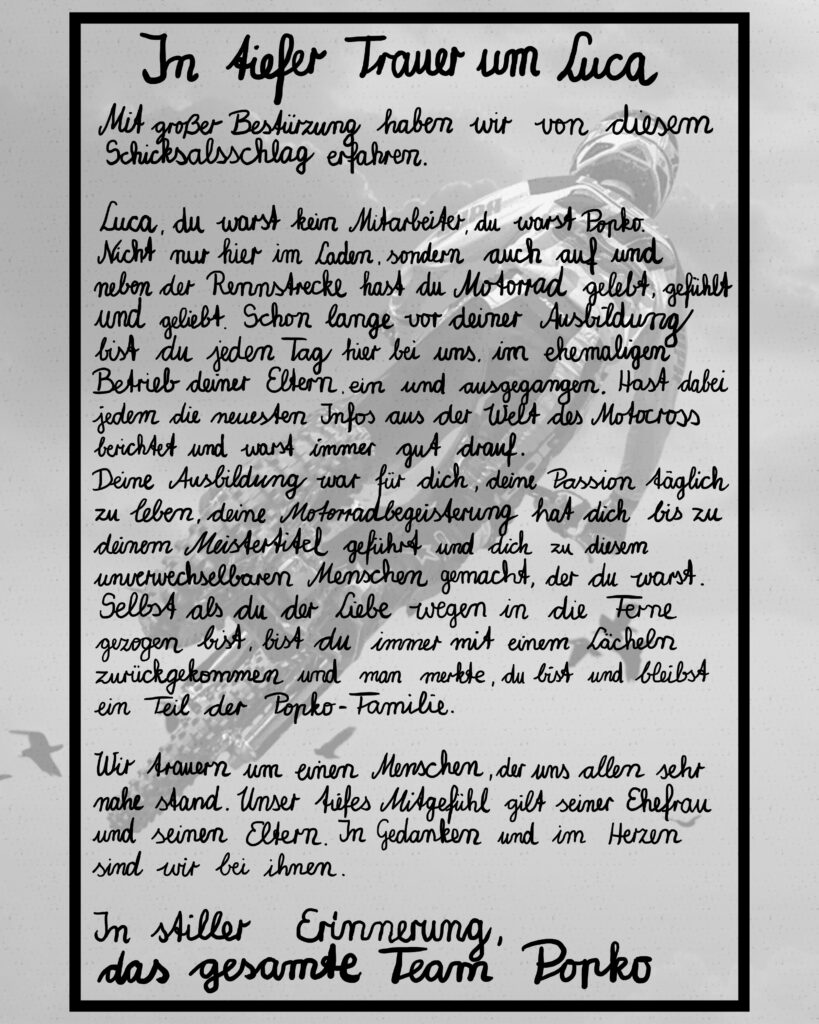 In tiefer Trauer um Luca
Mit großer Bestürzung haben wir von diesem
Schicksalsschlag erfahren.
Luca, du warst kein Mitarbeiter, du warst Popko.
Nicht nur hier im Laden, sondern auch auf und
neben der Rennstrecke hast du Motorrad gelebt, gefühlt
und geliebt. Schon lange vor deiner Ausbildung
bist du jeden Tag hier bei uns, im ehemaligen
Betrieb deiner Eltern, ein und ausgegangen. Hast dabei
jedem die neuesten Infos aus der Welt des Motocross
berichtet und warst immer gut drauf.
Deine Ausbildung war für dich, deine Passion täglich
zu leben, deine Motorradbegeisterung hat dich bis zu
deinem Meistertitel geführt und dich zu diesem
unverwechselbaren Menschen gemacht, der du warst.
Selbst als du der Liebe wegen in die Ferne
gezogen bist, bist du immer mit einem Lächeln
zurückgekommen und man merkte, du bist und bleibst
ein Teil der Popko-Familie.
Wir trauern um einen Menschen, der uns allen sehr
nahe stand. Unser tiefes Mitgefühl gilt seiner Ehefrau
und seinen Eltern. In Gedanken und im Herzen
sind wir bei ihnen.
In stiller Erinnerung,
das gesamte Team Popko